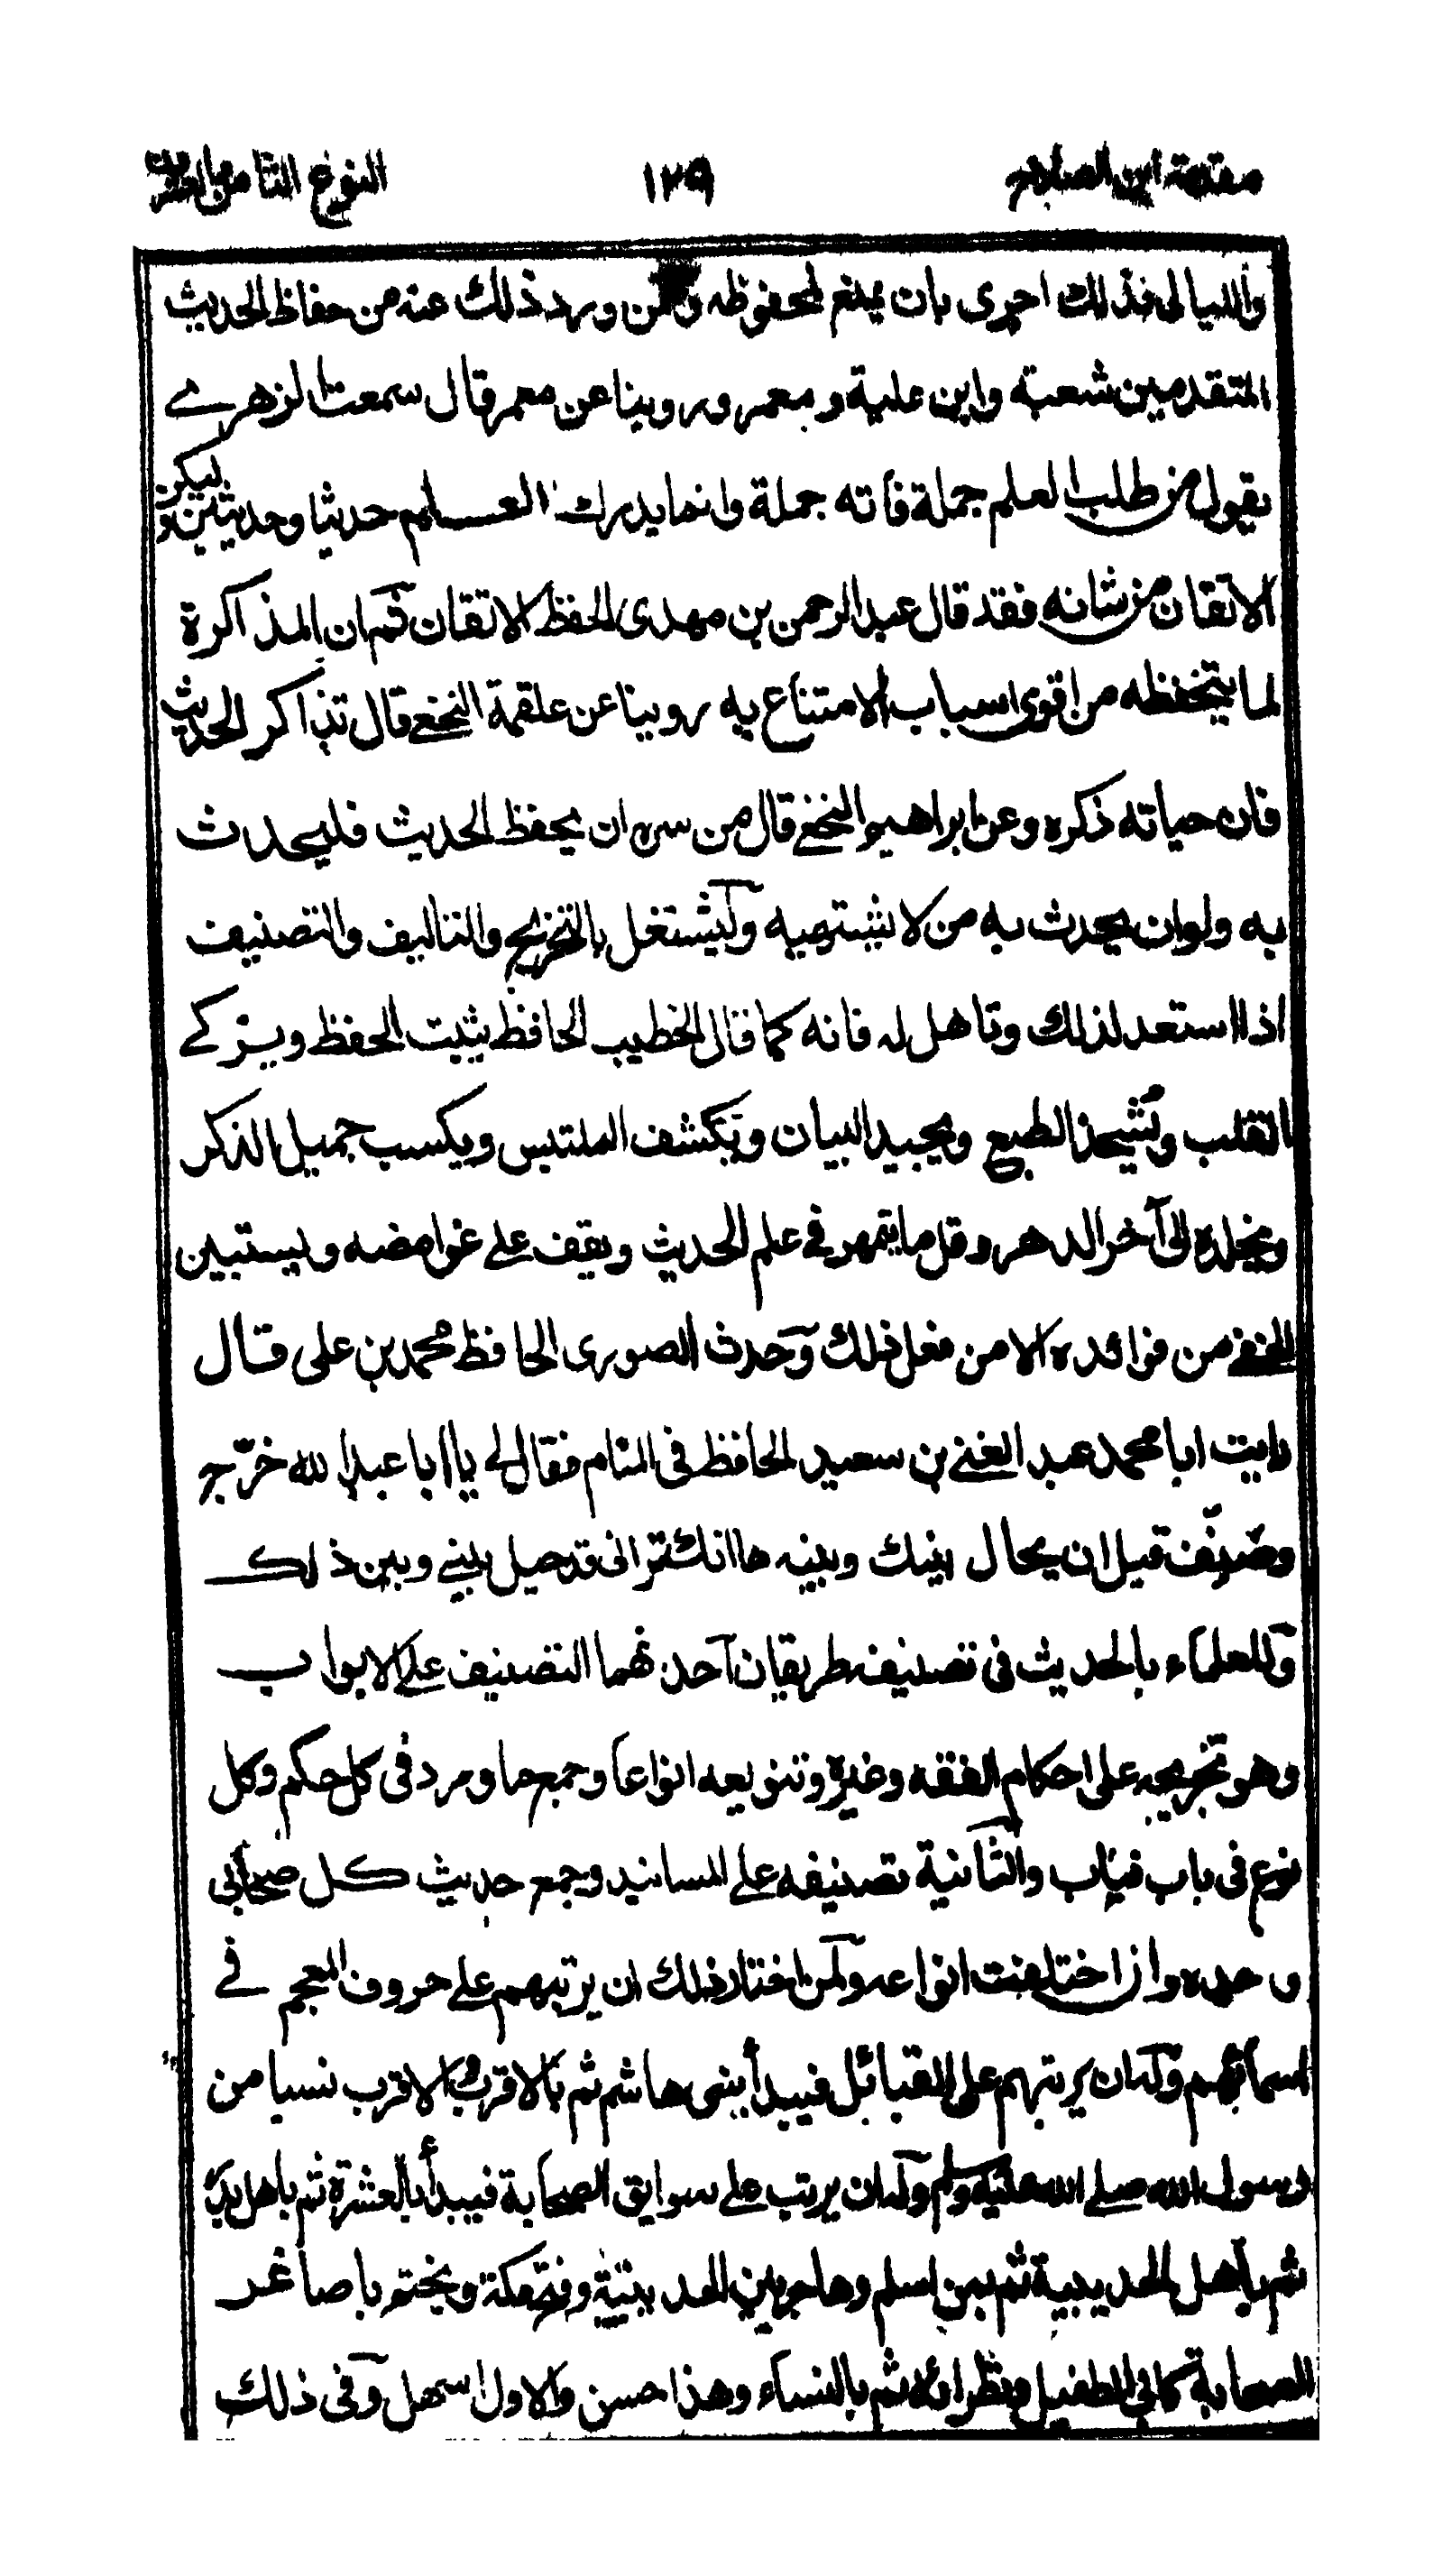 مقدمة ابن الصلاح ١٢٩ النوع الثامن والعشرون
والليالى فذلك احرى بان يمتع بمحفوظه وممن ورد ذلك عنه من حفاظ الحديث
المتقدمين شعبة وابن علية ومعمر وروينا عن معمر قال سمعت الزهرے
يقول من طلب العلم جملة فاته جملة وانما يدرك العلم حديثا وحديثين وليكن
الاتقان من شانه فقد قال عبد الرحمن بن مهدى الحفظ الاتقان ثم ان المذاكرة
لما يتحفظه من اقوى اسباب الامتناع به روينا عن علقمة النخعے قال تذاكر الحديث
فان حياته ذكره وعن ابراهيم النخعے قال من سره ان يحفظ الحديث فليحدث
به ولوان يحدث به من لا يشتهيه وليشتغل بالتخريج والتاليف والتصنيف
اذا استعد لذلك وتاهل له فانه كما قال الخطيب الحافظ يثبت الحفظ ويزكے
القلب ويشحذ الطبع ويجيد البيان ويكشف الملتبس ويكسب جميل الذكر
ويخلده الى آخر الدهر وقل ما يتمهر فے علم الحديث ويقف علے غوامضه ويستبين
الخفے من فوائده الا من فعل ذلك وحدث الصورى الحافظ محمد بن على قال
رايت ابا محمد عبد الغنے بن سعيد الحافظ فى المنام فقال لے يا ابا عبد الله خرّج
وصنّف قبل ان يحال بينك وبينه ها انك ترانى قد حيل بينے وبين ذلك
وللعلماء بالحديث فى تصنيفه طريقان احدهما التصنيف علے الابواب
وهو تخريجه على احكام الفقه وغيره وتنويعه انواعا وجمع ما ورد فى كل حكم وكل
نوع فى باب فباب والثانية تصنيفه علے المسانيد وجمع حديث كل صحابى
وحده وان اختلفت انواعه ولمن اختار ذلك ان يرتبهم علے حروف المعجم فے
اسمائهم وله ان يرتبهم على القبائل فيبدأ ببنى هاشم ثم بالاقرب فالاقرب نسبا من
رسول الله صلے الله عليه وسلم وله ان يرتب علے سوابق الصحابة فيبدأ بالعشرة ثم باهل بدر
ثم باهل الحديبية ثم بمن اسلم وهاجر بين الحديبية وفتح مكة ويختم باصاغر
الصحابة كابى الطفيل ونظرائه ثم بالنساء وهذا حسن والاول اسهل وفى ذلك